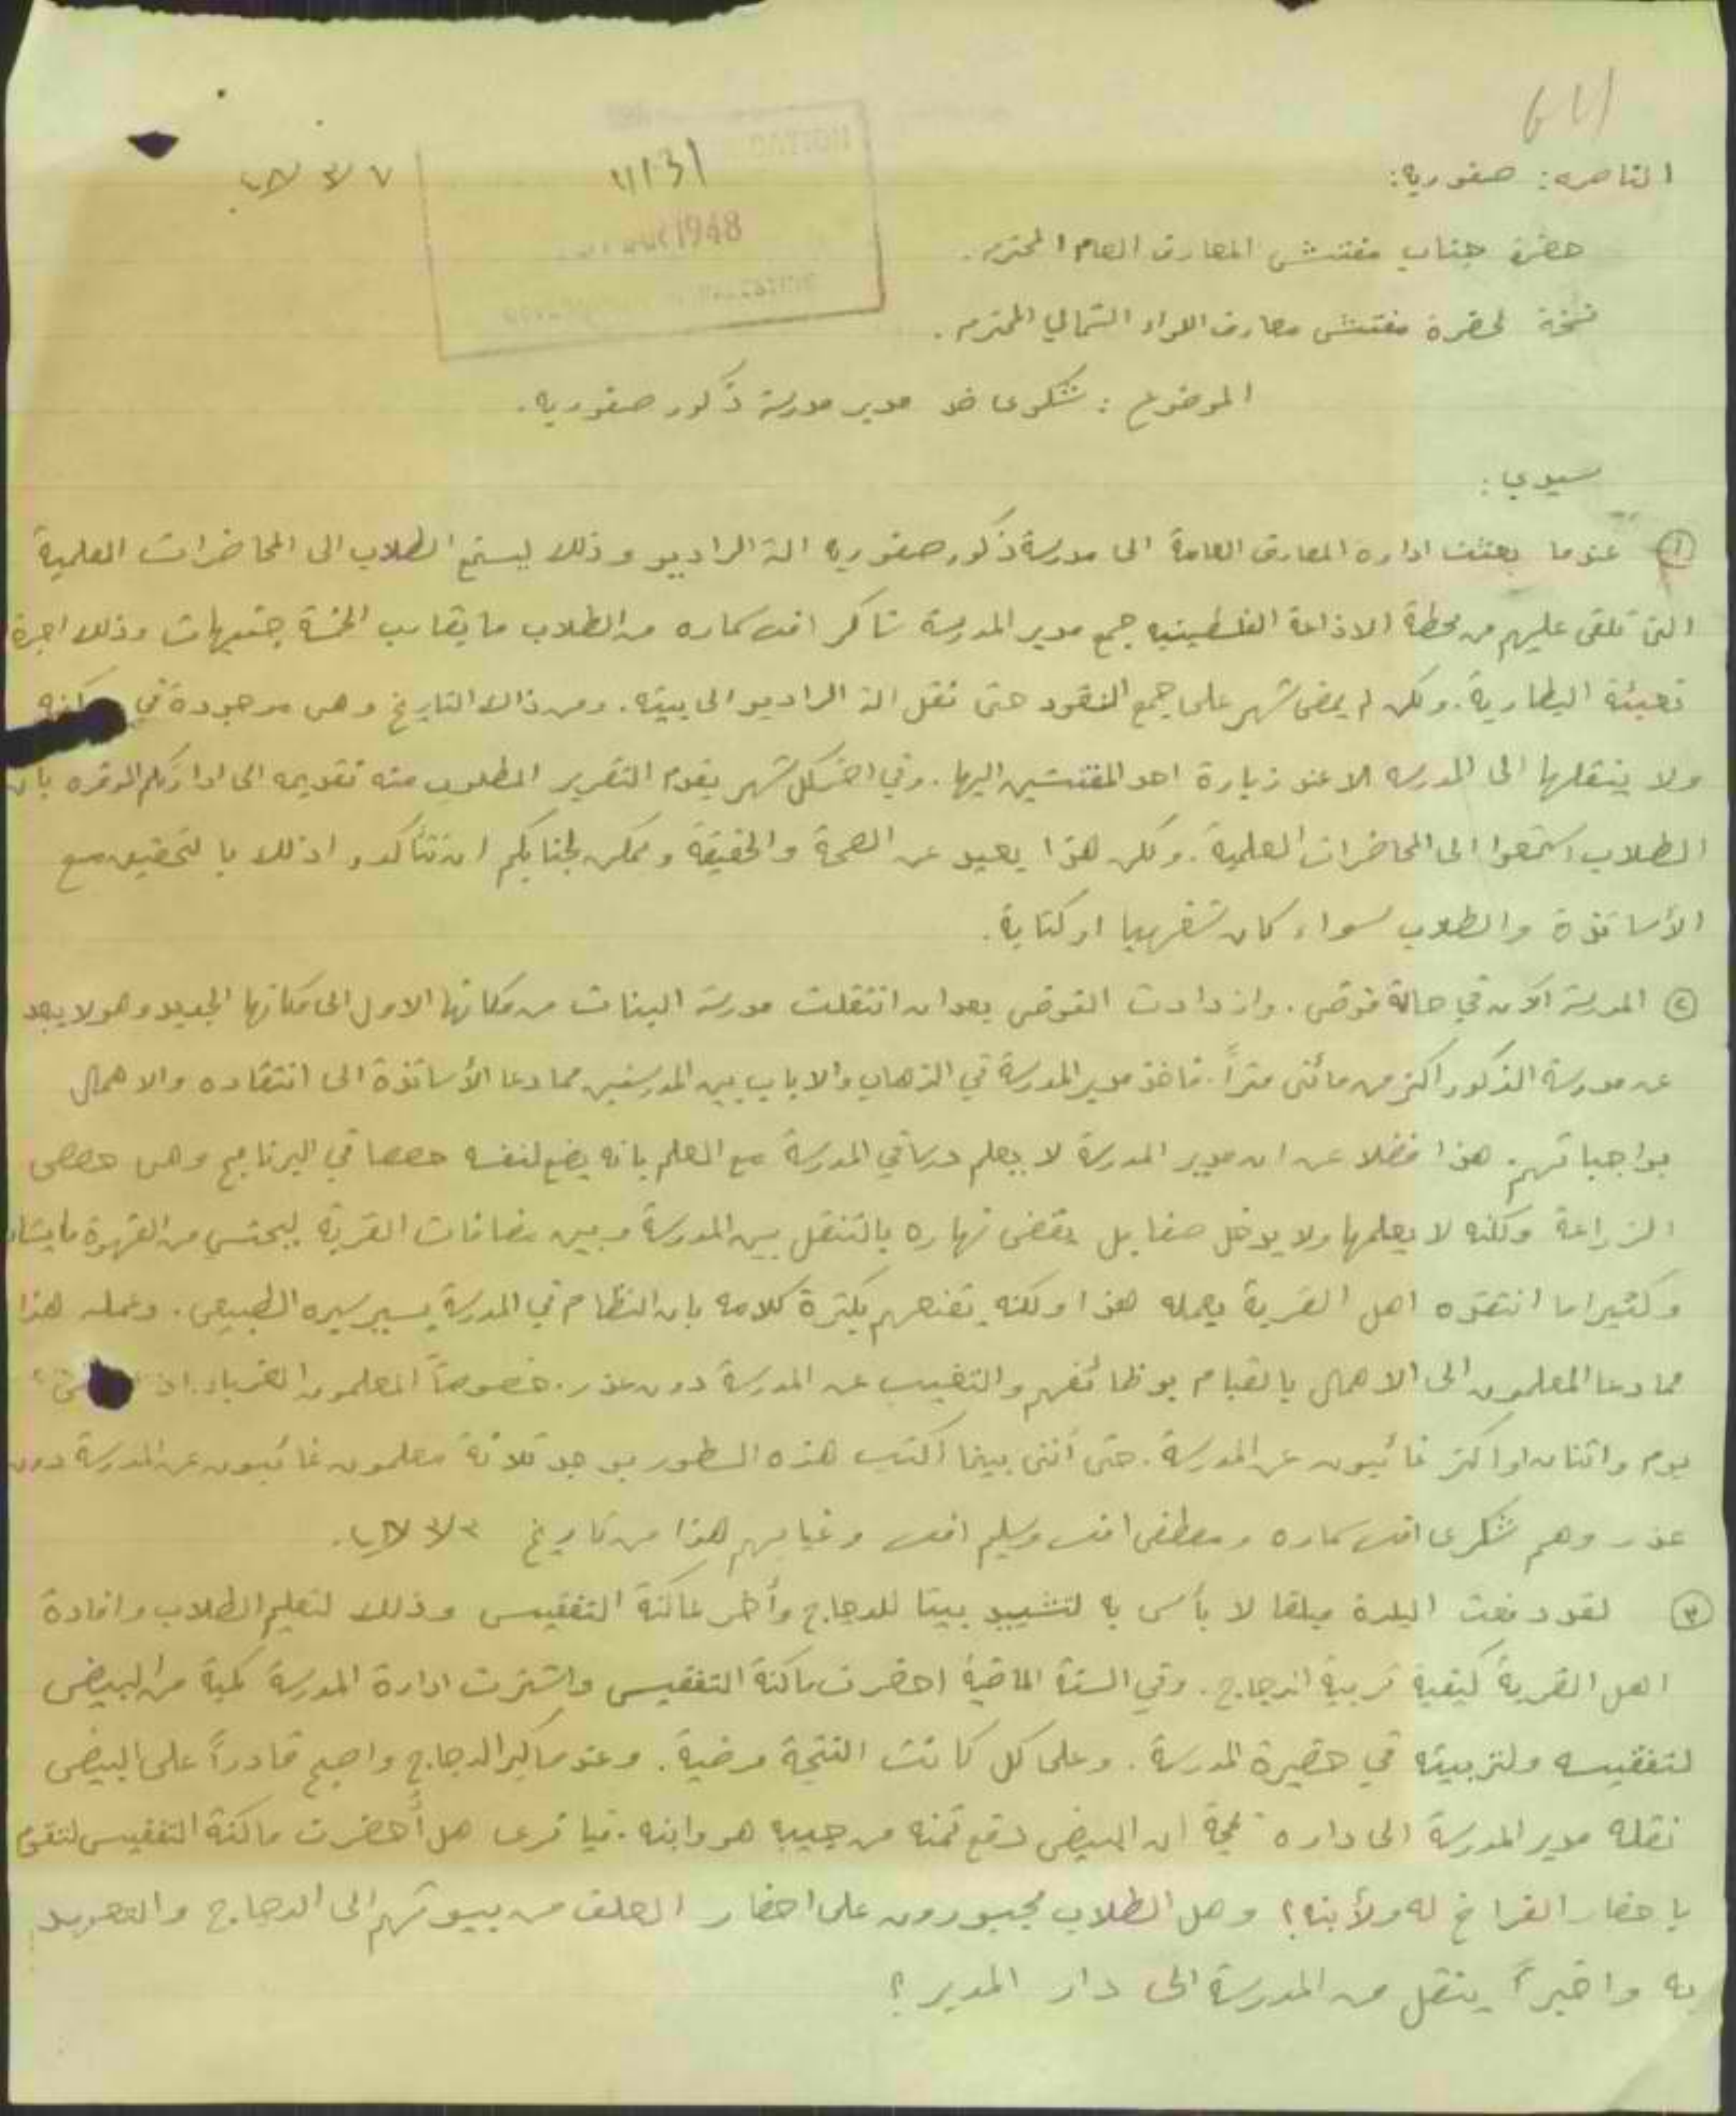 الناصره: صفوريه:
٧ ٣ ٤٨
1948
حضرة جناب مفتش المعارف العام المحترم.
نسخة لحضرة مفتش معارف اللواء الشمالي المحترم.
الموضوع: شكوى ضد مدير مدرسة ذكور صفوريه.
سيدي:
١ عندما بعثت اداره المعارف العامة الى مدرسة ذكور صفوريه الة الراديو وذلك ليستمع الطلاب الى المحاضرات العلمية
التي تلقى عليهم من محطة الاذاعة الفلسطينيه جمع مدير المدرسة شاكر افندي من الطلاب ما يقارب الخمسة جنيهات وذلك اجرة
تعبئة البطارية. ولكن لم يمض شهر على جمع النقود حتى نقل الة الراديو الى بيته. ومن ذاك التاريخ وهي موجودة في
ولا ينقلها الى المدرسه الا عند زيارة احد المفتشين اليها. وفي اخر كل شهر يقدم التقرير المطلوب منه تقديمه الى ادارتكم الموقره بان
الطلاب استمعوا الى المحاضرات العلمية. ولكن هذا بعيد عن الصحة والحقيقة وممكن لجنابكم ان تتأكدوا ذلك بالتحقيق مع
الأساتذة والطلاب سواء كان شفهيا او كتابة.
٢ المدرسة الآن في حالة فوضى. وازدادت الفوضى بعد ان انتقلت مدرسة البنات من مكانها الاول الى مكانها الجديد وهو لا يبعد
عن مدرسة الذكور اكثر من مائتي متراً. فاخذ مدير المدرسة في الذهاب والاياب بين المدرستين مما دعا الأساتذة الى انتقاده والاهمال
بواجباتهم. هذا فضلا عن ان مدير المدرسة لا يعلم درسا في المدرسة مع العلم بانه يضع لنفسه حصصا في البرنامج وهي حصص
الزراعة ولكنه لا يعلمها ولا يدخل صفا بل يقضي نهاره بالتنقل بين المدرسة وبين مضافات القرية ليحتسي من القهوة ما يشاء
وكثيرا ما انتقده اهل القرية بعمله هذا ولكنه يقنعهم بكثرة كلامه بان النظام في المدرسة يسير سيره الطبيعي. وعمله هذا
مما دعا المعلمون الى الاهمال بالقيام بوظائفهم والتغيب عن المدرسة دون عذر. خصوصاً المعلمون الغرباء. اذ
يوم واثنان او اكثر غائبون عن المدرسة. حتى أنني بينما اكتب هذه السطور يوجد ثلاثة معلمون غائبون عن المدرسة دون
عذر وهم شكري افندي ومصطفى افندي وسليم افندي وغيابهم هذا من تاريخ ٣ ٣ ٤٨.
٣ لقد دفعت البلدة مبلغا لا بأس به لتشييد بيتا للدجاج وأخر لماكنة التفقيس وذلك لتعليم الطلاب وافادة
اهل القرية كيفية تربية الدجاج. وفي السنة الماضية احضرت ماكنة التفقيس واشترت ادارة المدرسة كمية من البيض
لتفقيسه ولتربيته في حضيرة المدرسة. وعلى كل كانت النتيجة مرضية. وعندما كبر الدجاج واصبح قادراً على البيض
نقله مدير المدرسة الى داره بحجة ان البيض دفع ثمنه من جيبه هو وابنه. فيا ترى هل أحضرت ماكنة التفقيس لتقوم
باحضار الفراخ له ولأبنه؟ وهل الطلاب مجبورون على احضار العلف من بيوتهم الى الدجاج
به واخيراً ينتقل من المدرسة الى دار المدير؟